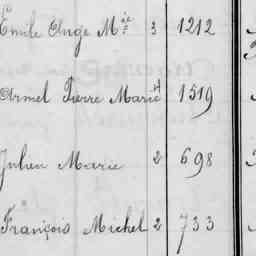 Emile Ange Mie 3 1212
Armel Pierre Marie 4 1519
Julien Marie 2 698
François Michel 2 733